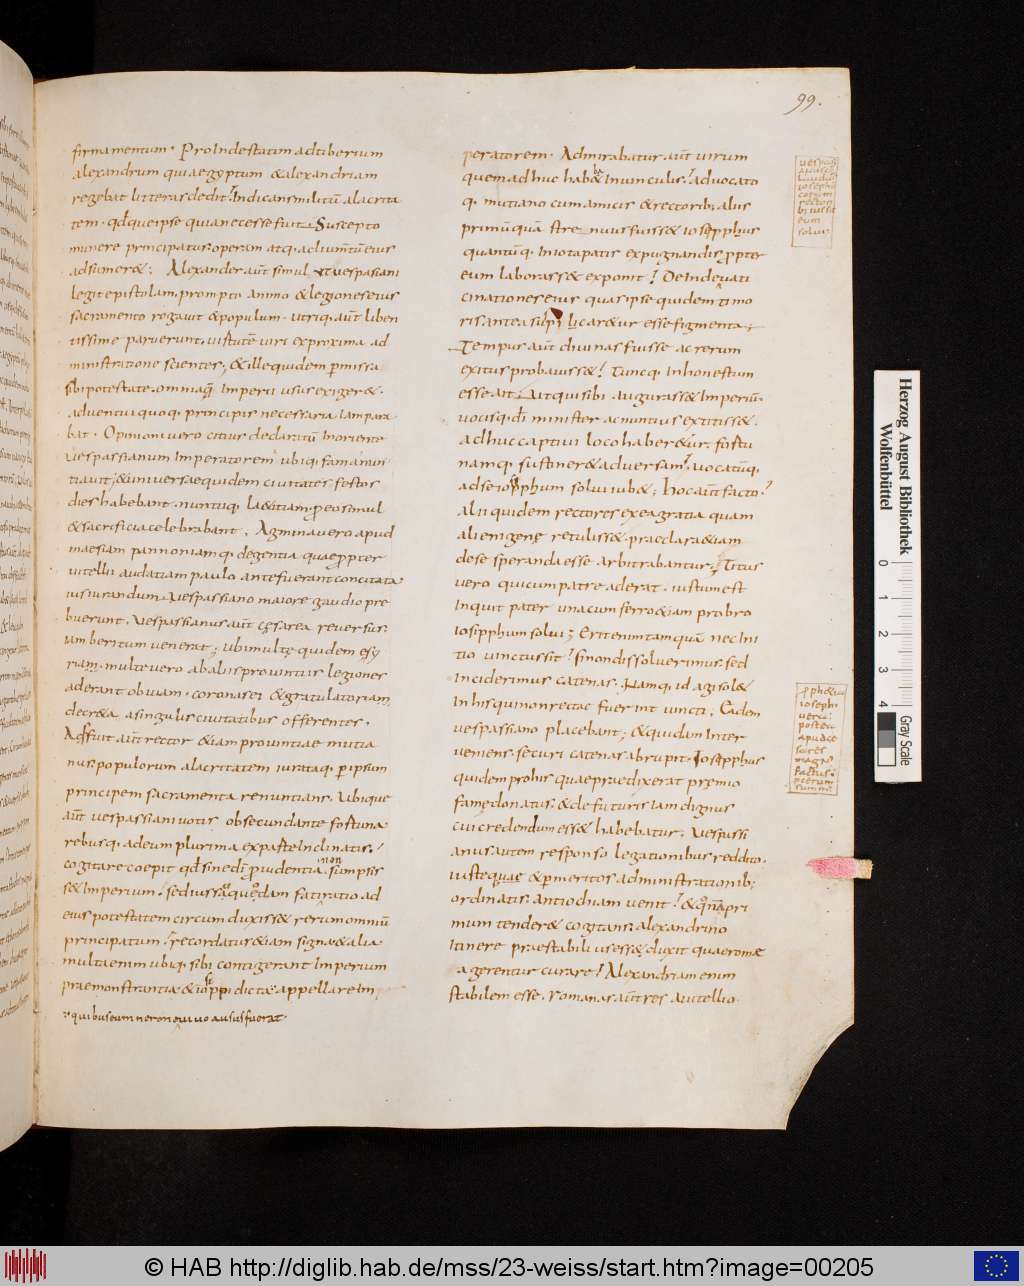 99.
firmamentum. Proinde statim ad tiberium
alexandrum qui aegyptum & alexandriam
regebat litteras dedit. Indicans militū alacrita
tem. qđ que ipse quia necesse fuit. Suscepto
munere principatus. operam atq. adiumtū eius
adsumer&; Alexander aūt simul ut vespasiani
legit epistolam. prompto animo & legiones eius
sacramento rogavit & populum. utriq. aūt liben
tissime paruerunt. virtutē viri ex proxima ad
ministratione scientes; & ille quidem pmissa
sibi potestate. omnia q̄ Imperii usus exiger&.
adventui quoq. principis necessaria iam para
bat. Opinioni vero citius declaratū In oriente
vespasianum Imperatorem ubiq. fama nun
tiavit; & universae quidem civitates festos
dies habebant. nuntiiq. la&itiam. p eo simul
& sacrificia celebrabant. Agmina vero apud
maesiam pannoniamq. degentia quae ppter
vitellii audatiam paulo ante fuerant concitata
iusiurandum. Vespasiano maiore gaudio pre
buerunt. Vespasianus aūt cęsarea reversus.
iam beritum venerat; ubi multę quidem e sy
riam. multe vero ab aliis provintiis legiones
aderant obviam. coronas ei & gratulatoriam
decr&a a singulis civitatibus offerentes.
Adfuit aūt rector &iam provintiae mutia
nus. populorum alacritatem iurataq. p ipsum
principem sacramenta renuntians. Ubique
aūt vespasiani votis obsecundante fortuna
rebusq. ad eum plurima ex parte Inclinatis.
cogitare coepit qđ sine dī pvidentia. non sumpsis
s& Imperium. sed iussa quędam fati ratio ad
eius potestatem circumduxiss& rerum omniū
principatum. recordatus &iam signa & alia
multa enim ubiq. sibi contigerant Imperium
praemonstrantia & ioseppi dicta. appellare Im
quibus eum nerone vivo ausus fuerat.
peratorem. Admirabatur aūt virum
quem adhuc haber& In vinculis. advocato
q. mutiano cum amicis & rectorib. aliis
primū quā strenuus fuiss& iosepphus
quantūq. In iotapatis expugnandis ppter
eum laborass& exponit. Deinde vati
cinationes eius quas ipse quidem timo
ris antea sibi licar&ur esse figmenta;
Tempus aūt divinas fuisse ac rerum
exitus probaviss&. Tuncq. In honestum
esse ait. Ut qui sibi augurass& Imperiū.
vocisq. dī minister ac nuntius extitiss&.
Adhuc captivi loco haber&ur. fortu
namq. sustiner& adversam. vocatūq.
ad se iosepphum solvi iub&; Hoc aūt facto.
alii quidem rectores ex ea gratia quam
alienigenę retuliss&. praeclara &iam
de se speranda esse arbitrabantur. Titus
vero qui cum patre aderat. iustum est
Inquit pater una cum ferro &iam probro
iosipphum solvi; Erit enim tam quā nec Ini
tio vinctus sit. si non dissolverimus. sed
Inciderimus catenas. Namq. id agi sol&
In his qui non recte fuerint vincti. Eadem
vespasiano placebant; & quidam Inter
veniens. securi catenas abrupit. Iosepphus
quidem pro his quae praedixerat premio
famę donatus. & de futuris iam dignus
cui credendum ess& habebatur. Vespassi
anus autem responso legationibus reddito.
iusteq̄ & pmeritos administrationib;
ordinatis. antiochiam venit. & quonam pri
mum tender& cogitans. alexandrino
Itinere praestabilius ess& duxit quae romę
agerentur curare. Alexandriam enim
stabilem esse. romanas aūt res a vitellio
vespasi
iosephū
coram
rector
ib; iussit
eum
solvi.
iosephi
vera:
postea
apud ce
sares
magn
factus